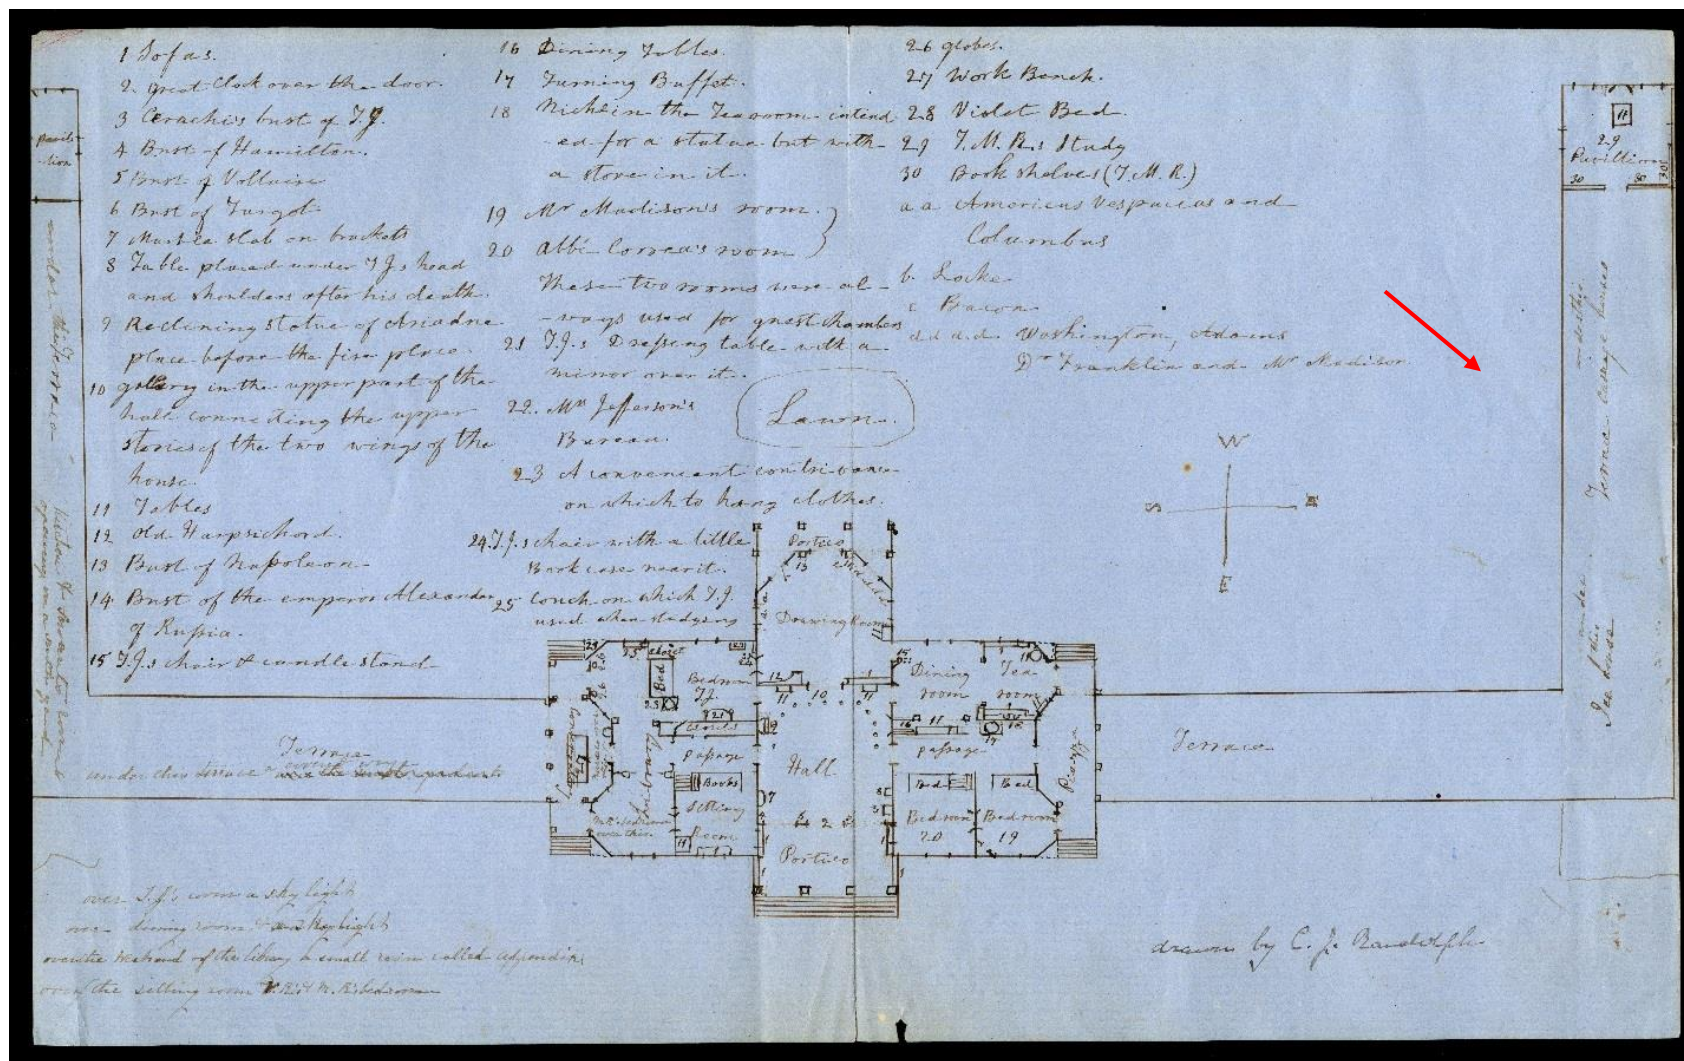 1 Sofas.
2. great Clock over the door.
3 Cerachi's bust of T.J.
4 Bust of Hamilton.
5 Bust of Voltaire
6 Bust of Turgot
7 Marble slab on brackets
8 Table placed under T.J.s head
and shoulders after his death.
9 Reclining statue of Ariadne
place before the fire place.
10 gallery in the upper part of the
hall connecting the upper
stories of the two wings of the
house.
11 Tables
12 Old Harpsichord.
13 Bust of Napoleon
14 Bust of the emperor Alexander
of Russia.
15 T.J.s chair & candle stand
16 Dining Tables.
17 Turning Buffet.
18 Niche in the Tea room intend
-ed for a statue but with
a stove in it.
19 Mr Madison's room.
20 Abbé Correa's room
These two rooms were al-
-ways used for guest chambers
21 T.J.s Dressing table with a
mirror over it.
22. Mrs Jefferson's
Bureau.
23 A convenient contrivance
on which to hang clothes.
24. T.J.s chair with a little
Book case near it.
25 Couch on which T.J.
used when studying
26 globes.
27 Work Bench.
28 Violet Bed.
29 T.M.R.s Study
30 Book shelves (T.M.R.)
a a Americus Vespucius and
Columbus
b. Locke
c Bacon
d.d.d.d. Washington, Adams
Dr Franklin and Mr Madison.
Lawn.
W
S
N
E
Pavili
-tion
11
29
Pavillion
30
30
30
Terrace carriage houses
under this
Ice house
under
Portico
13
Drawing Room
11
12
11
10
11
Hall
Portico
Bedroom
T.J.
Bed
closet
23
21
Passage
Books
Sitting
Room
11
Library
Dining
room
Tea
room
16
11
17
Passage
Bed
Bed
Bedroom
20
Bedroom
19
Piazza
Terrace
Terrace
under this terrace
over T.J's room a sky light
over dining room a sky light
over the west end of the library a small room called appendix
over the sitting room T.M.R's bedroom
drawn by C. J. Randolph